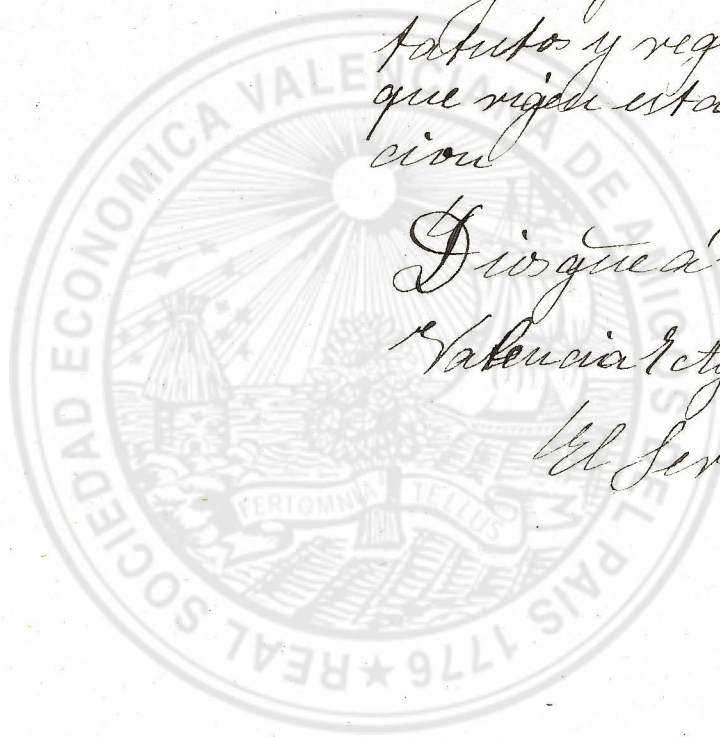 tatutos y reg
que rigen esta
cion
Dios gue a
Valencia
El Secr
REAL SOCIEDAD ECONOMICA VALENCIANA DE AMIGOS DEL PAIS 1776 ★
FERT OMNIA TELLUS